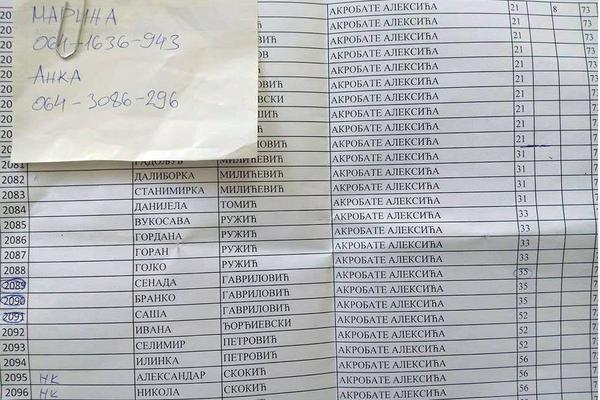 МАРИНА
064-1636-943
АНКА
064-3086-296
20 АКРОБАТЕ АЛЕКСИЋА 21 8 73
20 АКРОБАТЕ АЛЕКСИЋА 21 73
20 АКРОБАТЕ АЛЕКСИЋА 21 73
20 АКРОБАТЕ АЛЕКСИЋА 21 73
20 АКРОБАТЕ АЛЕКСИЋА 21 73
20 АКРОБАТЕ АЛЕКСИЋА 21 73
20 АКРОБАТЕ АЛЕКСИЋА 21 73
20 АКРОБАТЕ АЛЕКСИЋА 21 73
20 АКРОБАТЕ АЛЕКСИЋА 21 73
2081 МИЛИЋЕВИЋ АКРОБАТЕ АЛЕКСИЋА 31
2082 ДАЛИБОРКА МИЛИЋЕВИЋ АКРОБАТЕ АЛЕКСИЋА 31
2083 СТАНИМИРКА МИЛИЋЕВИЋ АКРОБАТЕ АЛЕКСИЋА 31
2084 ДАНИЈЕЛА ТОМИЋ АКРОБАТЕ АЛЕКСИЋА 31
2085 ВУКОСАВА РУЖИЋ АКРОБАТЕ АЛЕКСИЋА 33
2086 ГОРДАНА РУЖИЋ АКРОБАТЕ АЛЕКСИЋА 33
2087 ГОРАН РУЖИЋ АКРОБАТЕ АЛЕКСИЋА 33
2088 ГОЈКО РУЖИЋ АКРОБАТЕ АЛЕКСИЋА 33
2089 СЕНАДА ГАВРИЛОВИЋ АКРОБАТЕ АЛЕКСИЋА 35
2090 БРАНКО ГАВРИЛОВИЋ АКРОБАТЕ АЛЕКСИЋА 35
2091 САША ГАВРИЛОВИЋ АКРОБАТЕ АЛЕКСИЋА 35
2092 ИВАНА ЂОРЂИЕВСКИ АКРОБАТЕ АЛЕКСИЋА 52
2093 СЕЛИМИР ПЕТРОВИЋ АКРОБАТЕ АЛЕКСИЋА 52
2094 ИЛИНКА ПЕТРОВИЋ АКРОБАТЕ АЛЕКСИЋА 52
2095 НК АЛЕКСАНДАР СКОКИЋ АКРОБАТЕ АЛЕКСИЋА 56
2096 НК НИКОЛА СКОКИЋ АКРОБАТЕ АЛЕКСИЋА 56